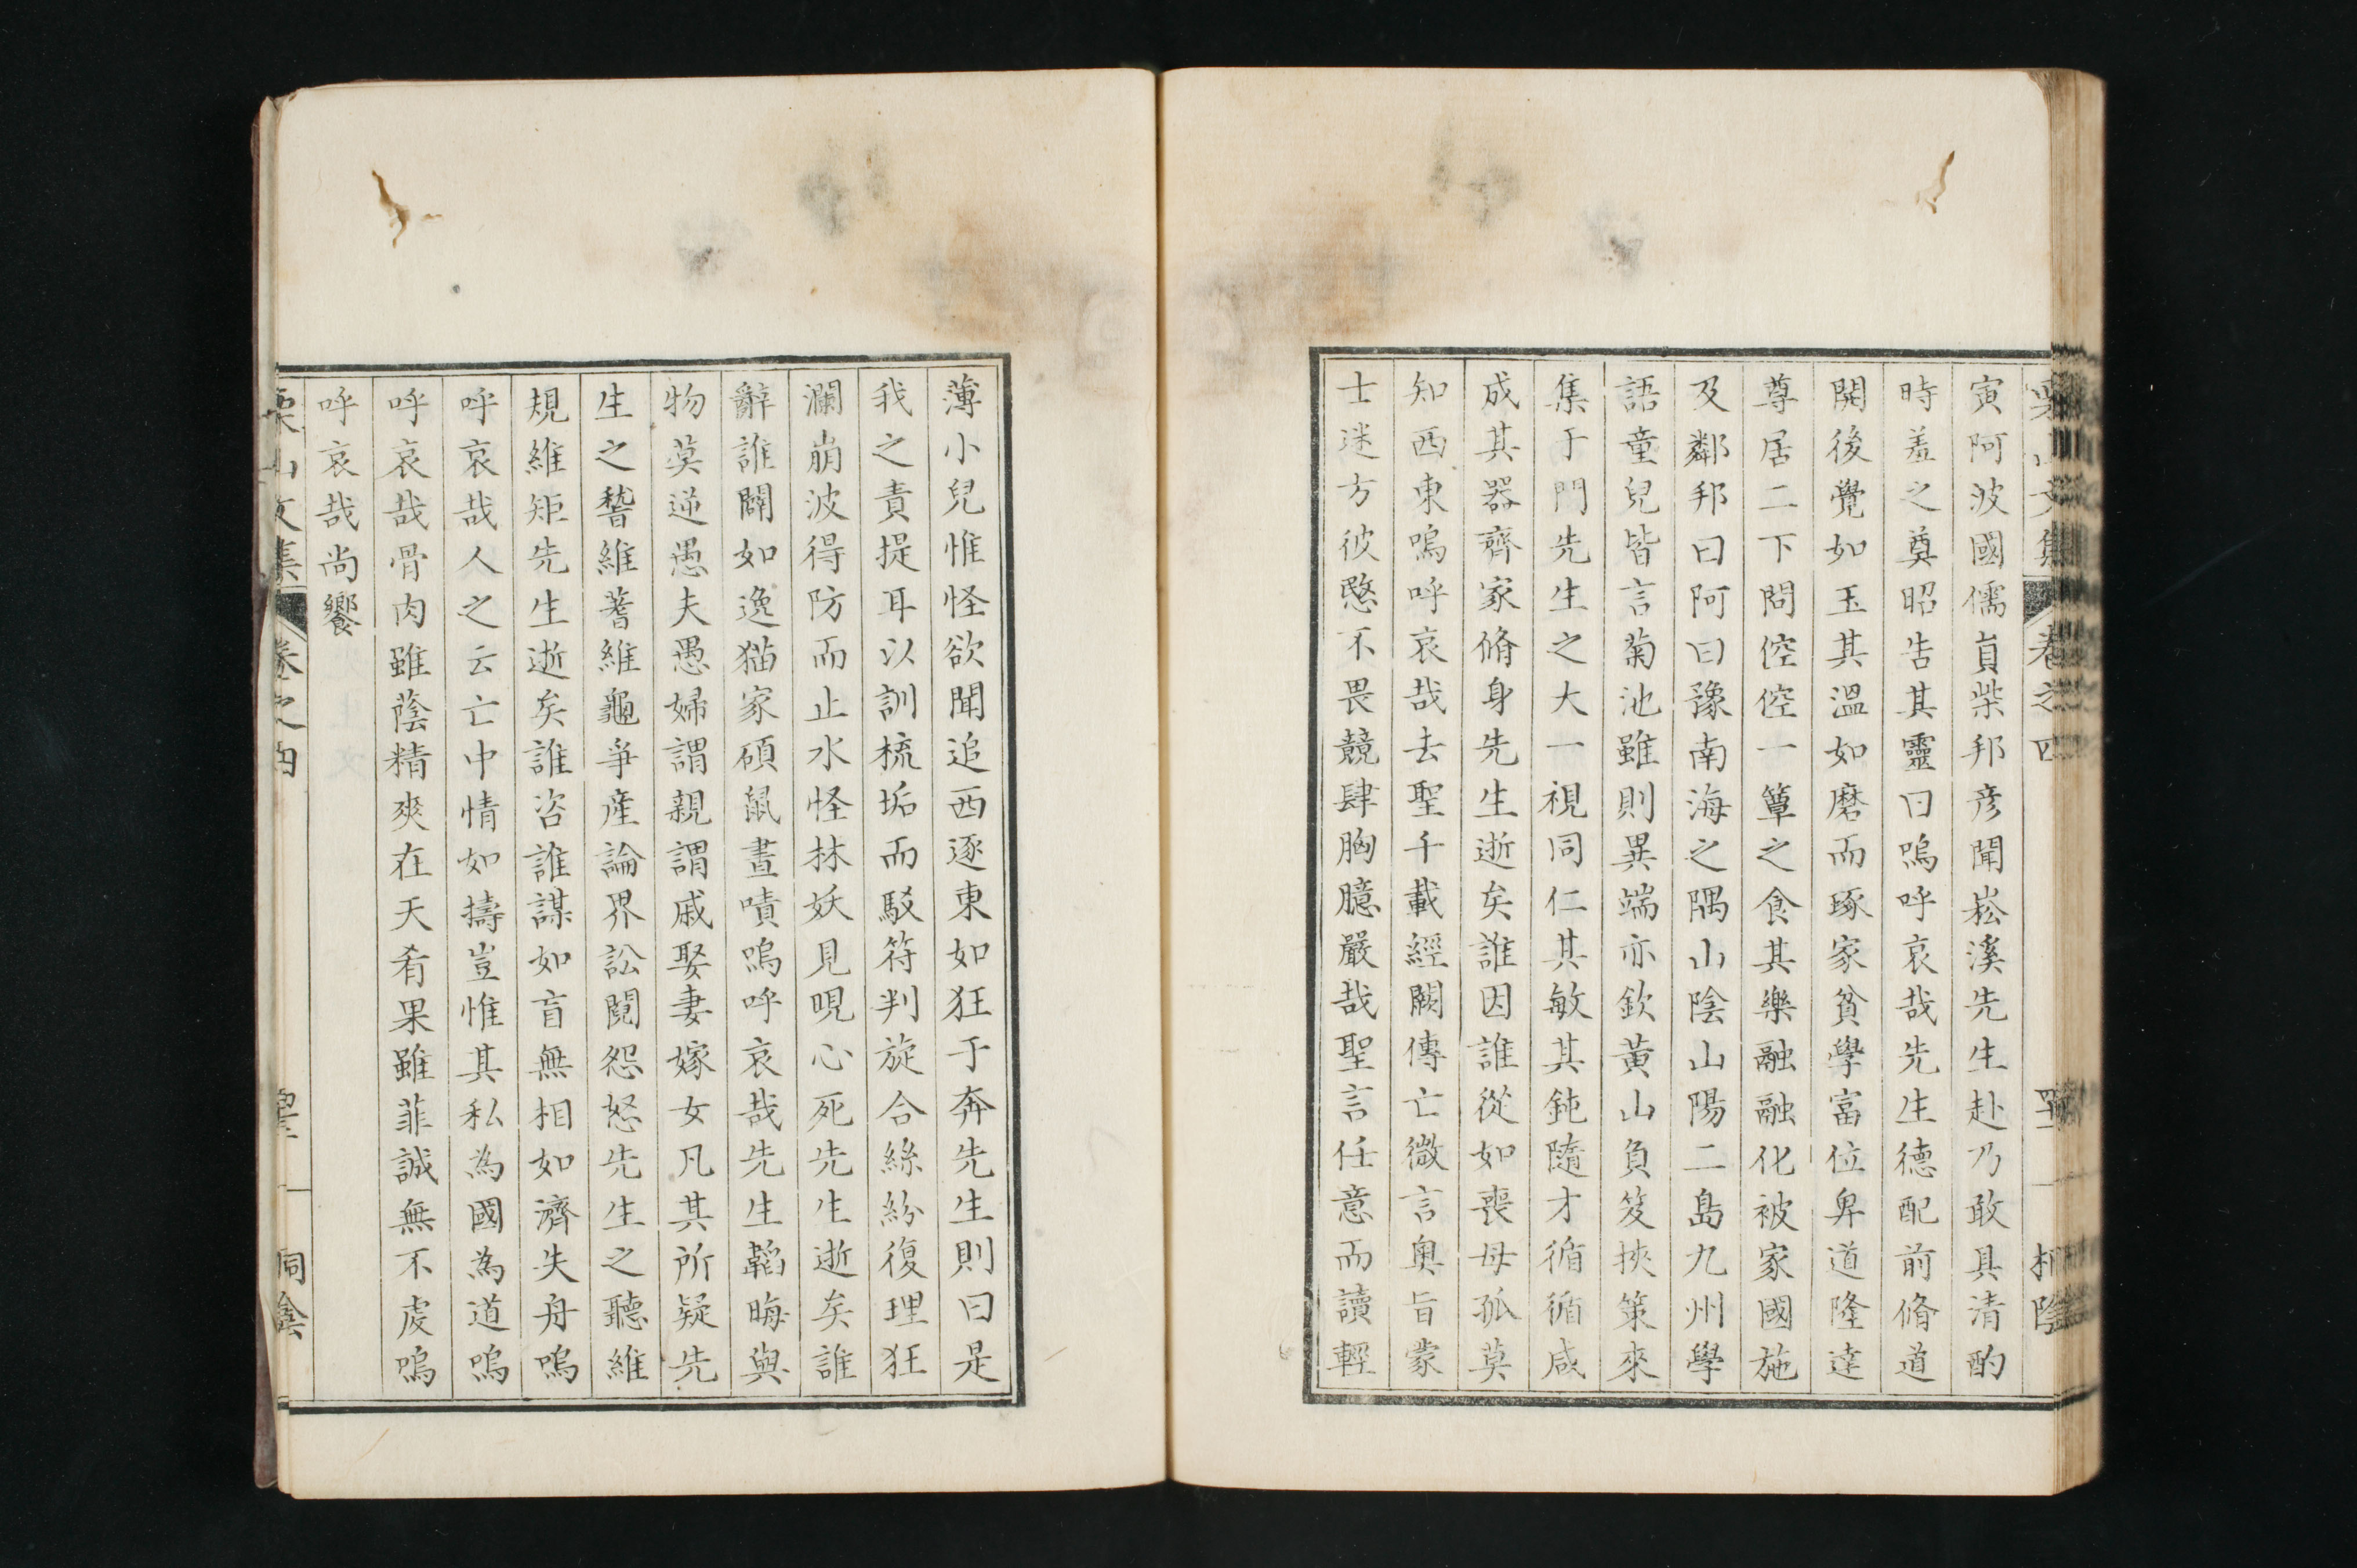 寅阿波國儒貟柴邦彦聞崧溪先生赴乃敢具清酌
時羞之奠昭告其靈曰嗚呼哀哉先生德配前脩道
開後覺如玉其溫如磨而琢家貧學富位卑道隆達
尊居二下問倥倥一簞之食其樂融融化被家國施
及鄰邦曰阿曰豫南海之隅山陰山陽二島九州學
語童兒皆言菊池雖則異端亦欽黄山負笈挾策來
集于門先生之大一視同仁其敏其鈍隨才循循咸
成其器齊家脩身先生逝矣誰因誰從如喪母孤莫
知西東嗚呼哀哉去聖千載經闕傳亡微言奥旨蒙
士迷方彼愍不畏競肆胸臆嚴哉聖言任意而讀輕
薄小兒惟怪欲聞追西逐東如狂于奔先生則曰是
我之責提耳以訓梳垢而駁符判旋合絲紛復理狂
瀾崩波得防而止水怪林妖見晛心死先生逝矣誰
辭誰闢如逸猫家碩鼠晝嘖嗚呼哀哉先生韜晦與
物莫逆愚夫愚婦謂親謂戚娶妻嫁女凡其所疑先
生之䅲維蓍維龜爭産論界訟鬩怨怒先生之聽維
規維矩先生逝矣誰咨誰謀如盲無相如濟失舟嗚
呼哀哉人之云亡中情如擣豈惟其私為國為道嗚
呼哀哉骨肉雖蔭精爽在天肴果雖菲誠無不虔嗚
呼哀哉尚饗
栗山文集 卷之四 桐陰